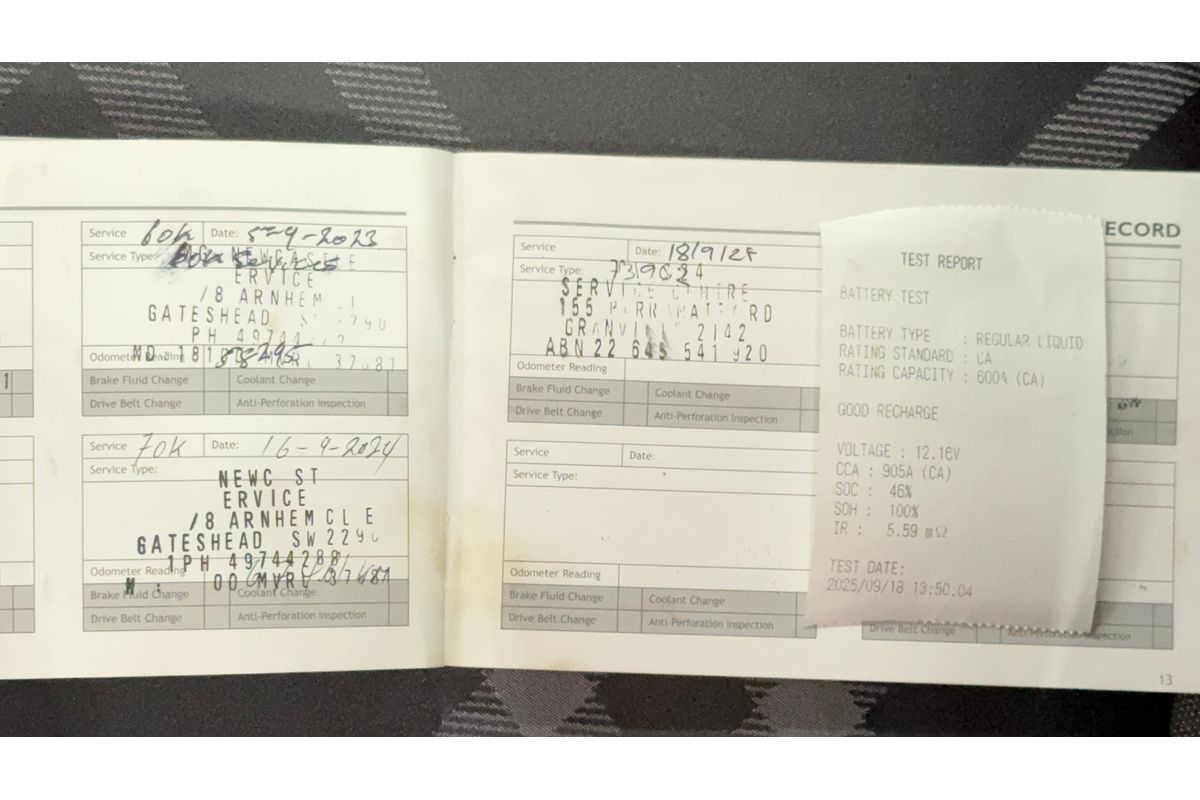 1
Service 60K Date: 5-9-2023
Service Type: NEWCASTLE
ERVICE
/8 ARNHEM
GATESHEAD
PH 4974
Odometer Reading
Brake Fluid Change Coolant Change
Drive Belt Change Anti-Perforation Inspection
Service 70K Date: 16-9-2024
Service Type:
NEWC ST
ERVICE
/8 ARNHEM CL E
GATESHEAD SW 229
1PH 49744288
Odometer Reading
Brake Fluid Change Coolant Change
Drive Belt Change Anti-Perforation Inspection
ECORD
Service Date: 18/9/25
Service Type:
SERVI
155 RD
GRANVILL 2142
ABN 22 645 541 920
Odometer Reading
Brake Fluid Change Coolant Change
Drive Belt Change Anti-Perforation Inspection
Service Date:
Service Type:
Odometer Reading
Brake Fluid Change Coolant Change
Drive Belt Change Anti-Perforation Inspection
TEST REPORT
BATTERY TEST
BATTERY TYPE : REGULAR LIQUID
RATING STANDARD : CA
RATING CAPACITY : 600A (CA)
GOOD RECHARGE
VOLTAGE : 12.16V
CCA : 905A (CA)
SOC : 46%
SOH : 100%
IR : 5.59 mΩ
TEST DATE:
2025/09/18 13:50:04
Drive Belt Change Anti-Perforation Inspection
13